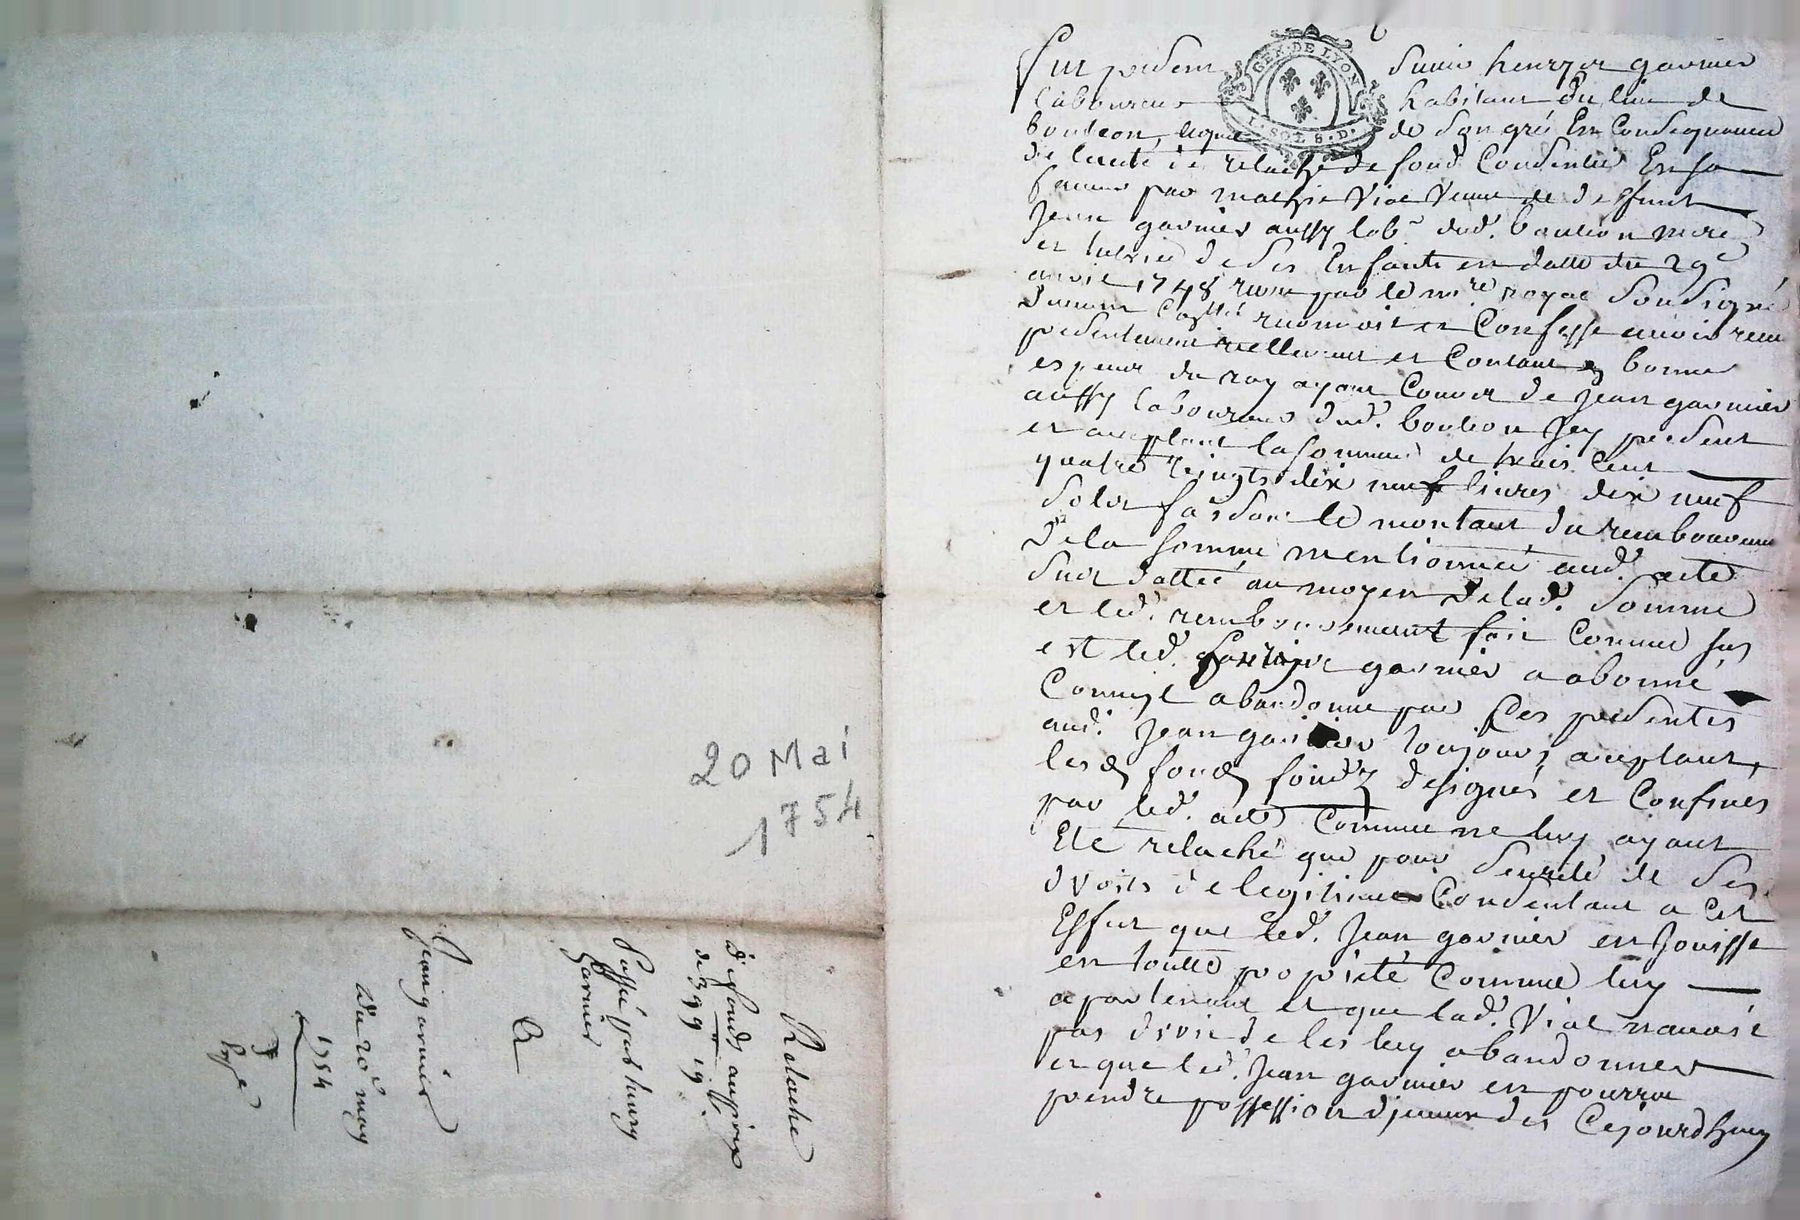 20 Mai
1754
Relache
de fonds au prix
de 399 ₶ 19 s.
Passé par henry
Garnier
A
Jean garnier
du 20e may
1754
GEN. DE LYON
1. SOL 8. D.
fut present sieur henry garnier
laboureur habitant du lieu de
bouteon, lequel de son gré En Consequance
de lacte de relache de fond Consentie En sa
faveur par Vial Veuve de deffunt
Jean garnier aussy labr dud. bouteon mere
et tutrice de ses Enfants en datte du 29e
1748 receu par le nre royal Soussigné
et Confesse avoir receu
presentement reellement et Contant en bonnes
especes du roy ayant Cours de Jean garnier
aussy laboureur dud. bouteon Icy present
et acceptant la somme de trois Cent
quatre vingts dix neuf livres dix neuf
sols faisant le montant du rembourcement
de la somme mentionnée aud. acte
sus datté au moyen de lad. somme
et led. rembourcement fait Comme sus
est led. garnier a abonné
Comme abandonne par Ces presentes
aud. Jean garnier toujours acceptant,
lesd fonds designés et Confines
par led. acte Comme ne luy ayant
Eté relaché que pour seureté de ses
droits de legitime Consentant a Cet
Effet que led. Jean garnier en Jouisse
en toutte propriété Comme luy
apartenant et que lad. Vial navoit
pas droit de les luy abandonner
et que led. Jean garnier en pourra
prendre possession des Cejourdhuy